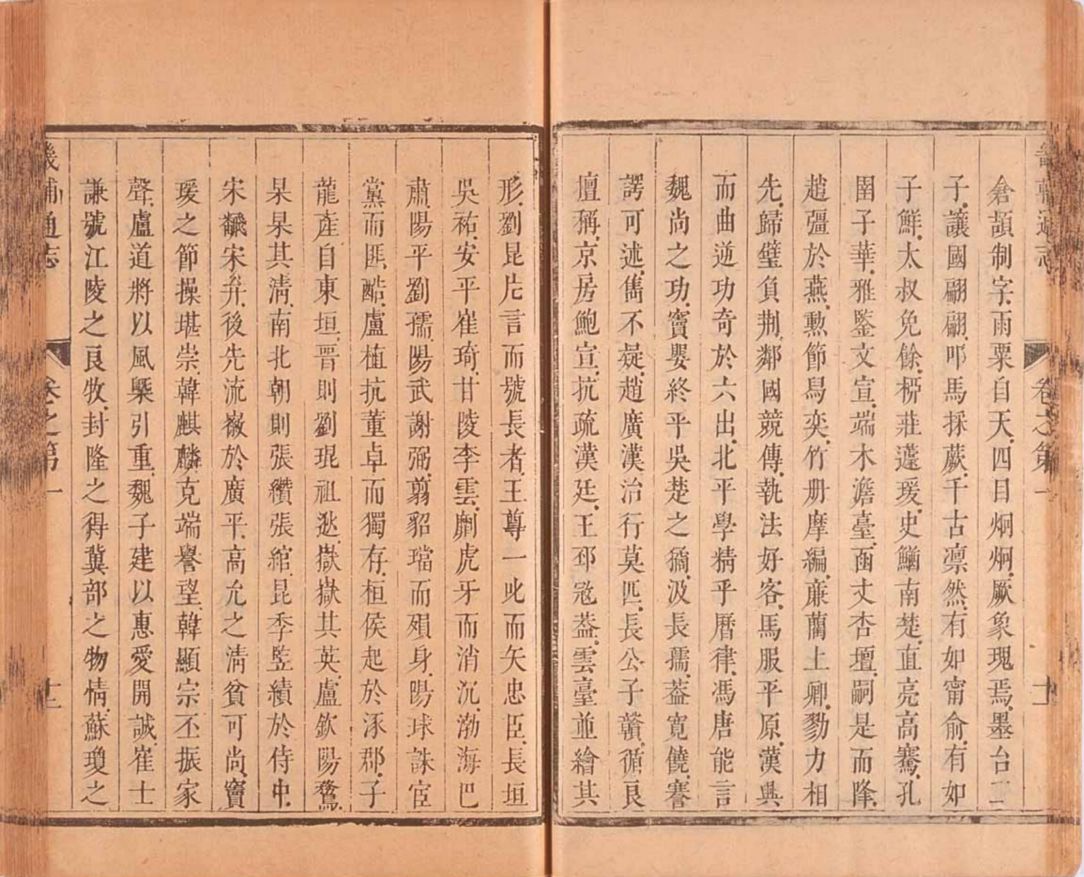 畿輔通志
卷之第一
十一
倉頡制字雨粟自天四目炯炯厥象瑰焉墨台二
子讓國翩翩叩馬採蕨千古凛然有如甯俞有如
子鮮太叔免餘栁莊蘧瑗史鰌南楚直亮高騫孔
圉子華雅鑒文宣端木澹臺函丈杏壇嗣是而隆
趙彊於燕勲節舄奕竹册摩編亷藺上卿勠力相
先歸璧負荆鄰國競傳執法好客馬服平原漢興
而曲逆功奇於六出北平學精乎曆律馮唐能言
魏尚之功竇嬰終平吳楚之猾汲長孺葢寬饒謇
諤可述雋不疑趙廣漢治行莫匹長公子贛循良
擅稱京房鮑宣抗疏漢廷王邳冦葢雲臺並繪其
形劉昆片言而號長者王尊一叱而矢忠臣長垣
吳祐安平崔琦甘陵李雲劘虎牙而消沉渤海巴
肅陽平劉孺陽武謝弼翦貂璫而殞身陽球誅宦
黨而匪酷盧植抗董卓而獨存桓侯起於涿郡子
龍產自東垣晋則劉琨祖逖嶽嶽其英盧欽陽騖
杲杲其清南北朝則張纘張綰昆季竪績於侍中
宋繇宋弁後先流徽於廣平高允之淸貧可尚竇
瑗之節操堪崇韓麒麟克端譽望韓顯宗丕振家
聲盧道將以風槩引重魏子建以惠愛開誠崔士
謙號江陵之良牧封隆之得冀部之物情蘇瓊之
畿輔通志
卷之第一
十二